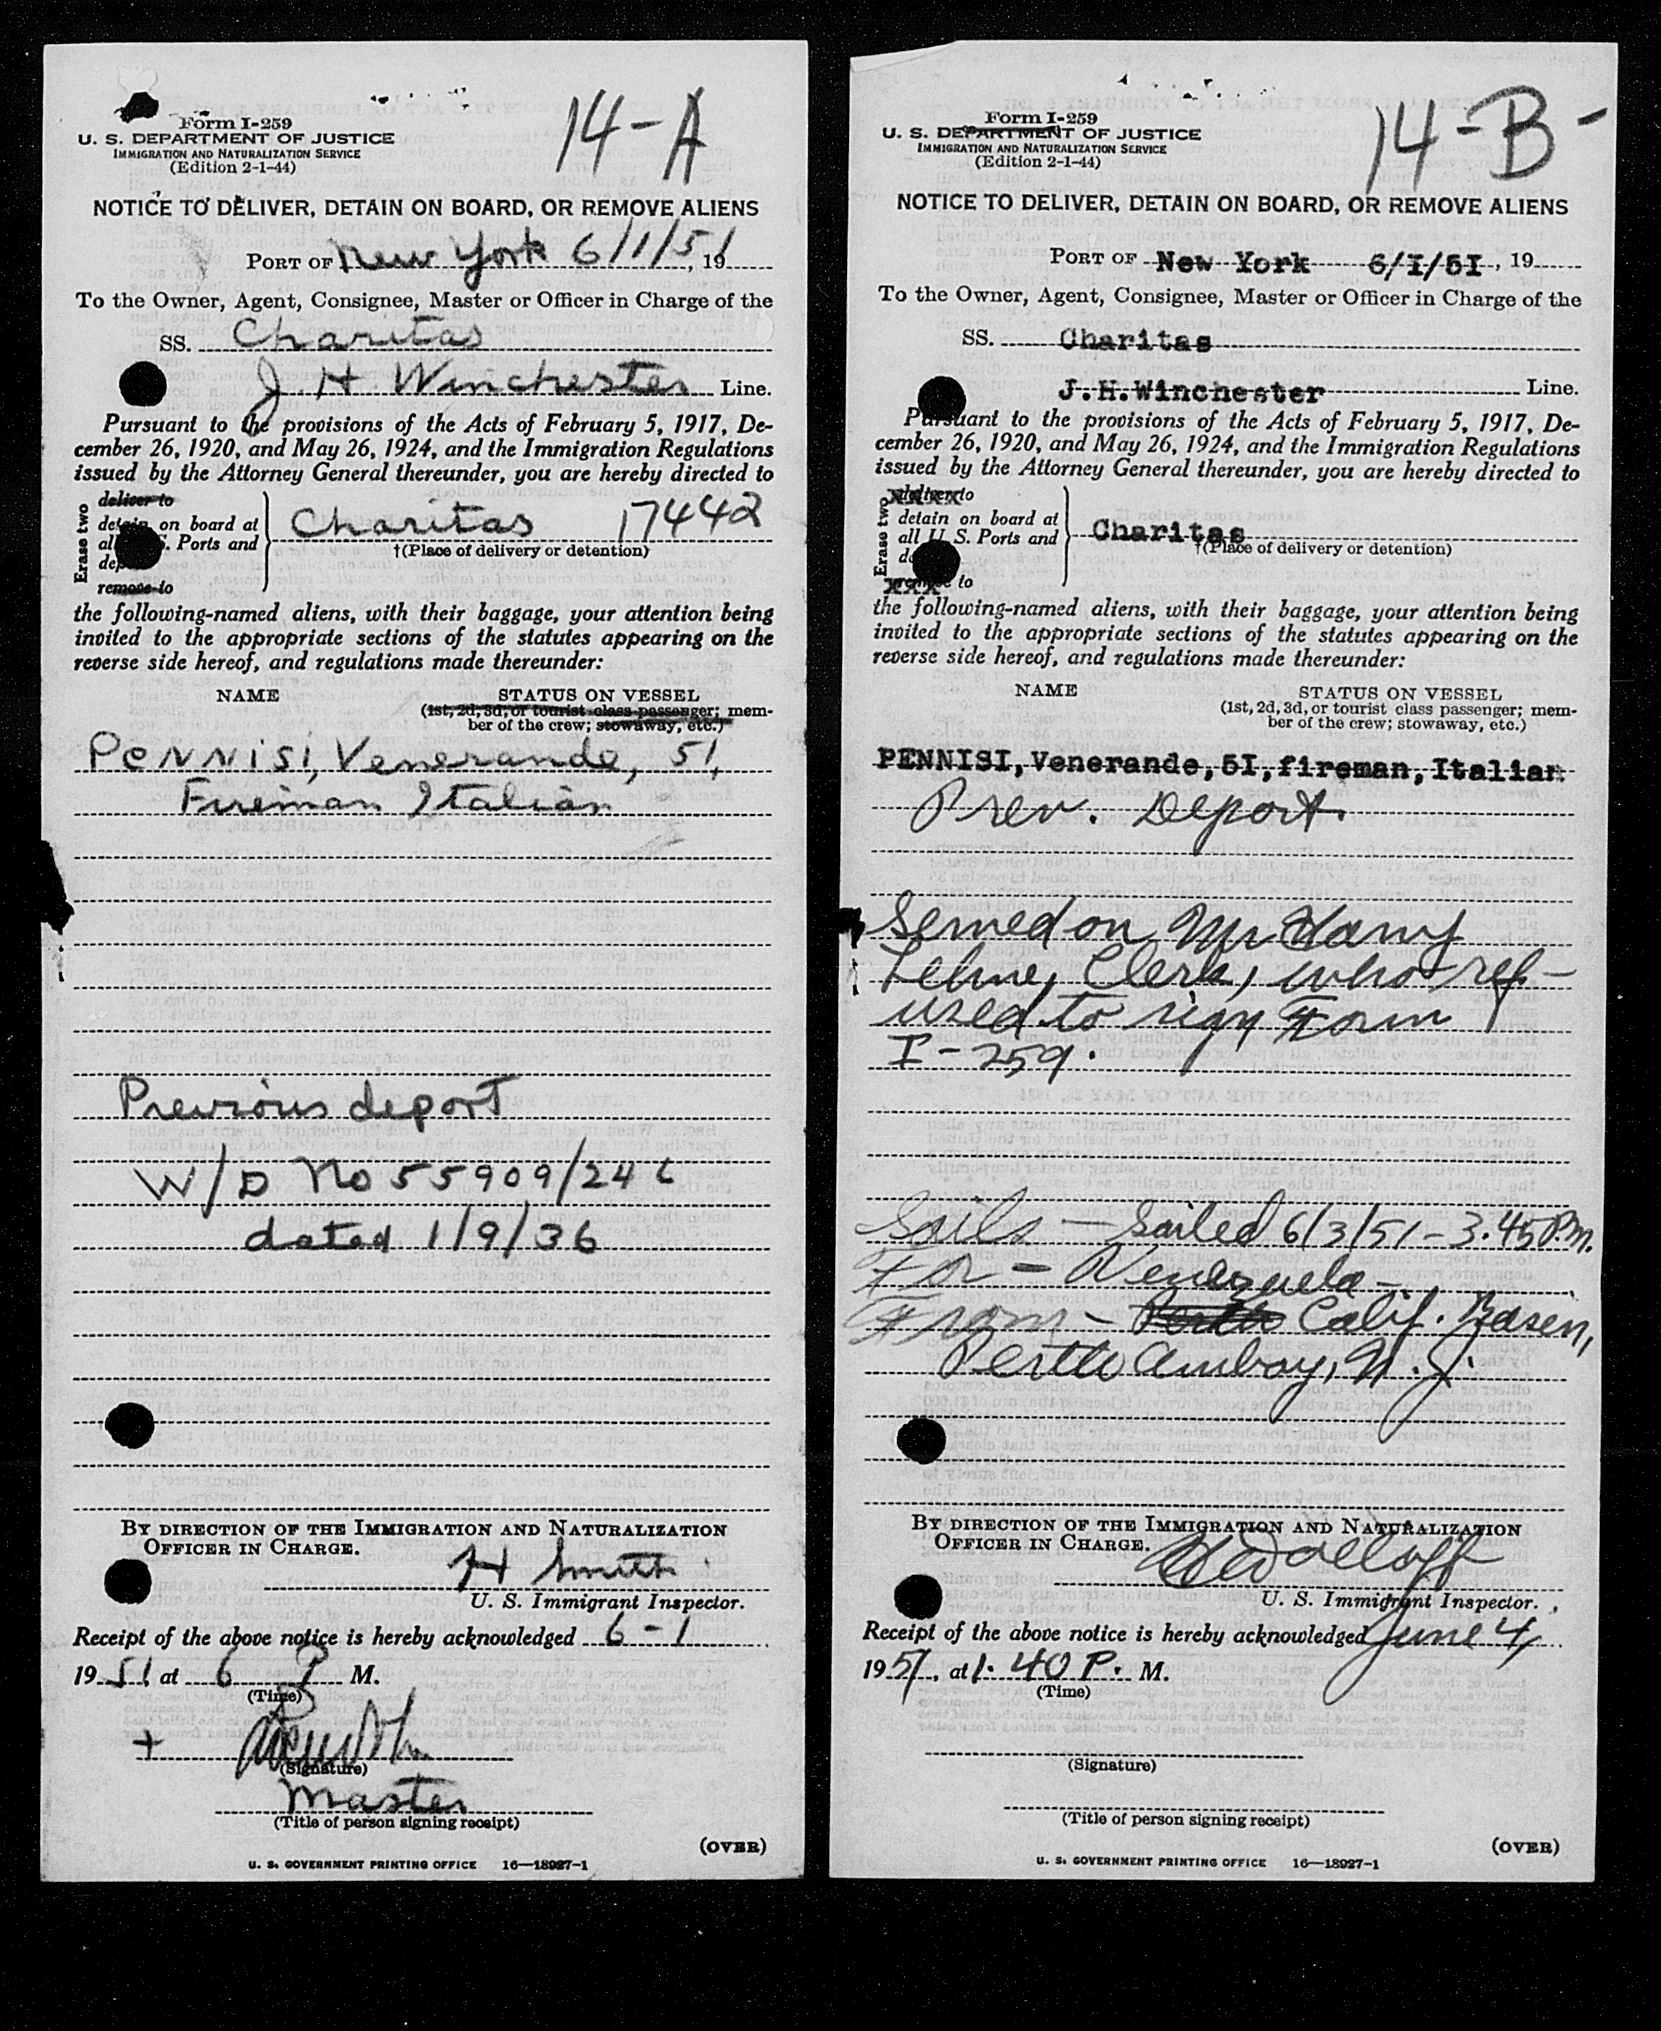 14-A
Form I-259
U. S. DEPARTMENT OF JUSTICE
IMMIGRATION AND NATURALIZATION SERVICE
(Edition 2-1-44)
NOTICE TO DELIVER, DETAIN ON BOARD, OR REMOVE ALIENS
PORT OF New York 6/1/51, 19
To the Owner, Agent, Consignee, Master or Officer in Charge of the
SS. Charitas
J. H. Winchester Line.
Pursuant to the provisions of the Acts of February 5, 1917, De-
cember 26, 1920, and May 26, 1924, and the Immigration Regulations
issued by the Attorney General thereunder, you are hereby directed to
Erase two
deliver to
detain on board at
all S. Ports and
remove to
Charitas 17442
†(Place of delivery or detention)
the following-named aliens, with their baggage, your attention being
invited to the appropriate sections of the statutes appearing on the
reverse side hereof, and regulations made thereunder:
NAME STATUS ON VESSEL
(1st, 2d, 3d, or tourist class passenger; mem-
ber of the crew; stowaway, etc.)
PENNISI, Venerande, 51,
Fireman Italian
Previous deport
W/D No 55909/246
dated 1/9/36
BY DIRECTION OF THE IMMIGRATION AND NATURALIZATION
OFFICER IN CHARGE.
H Smith
U. S. Immigrant Inspector.
Receipt of the above notice is hereby acknowledged 6-1
1951 at 6 P M.
(Time)
+
(Signature)
Master
(Title of person signing receipt)
(OVER)
U. S. GOVERNMENT PRINTING OFFICE 16—18927-1
14-B-
Form I-259
U. S. DEPARTMENT OF JUSTICE
IMMIGRATION AND NATURALIZATION SERVICE
(Edition 2-1-44)
NOTICE TO DELIVER, DETAIN ON BOARD, OR REMOVE ALIENS
PORT OF New York 6/I/5I, 19
To the Owner, Agent, Consignee, Master or Officer in Charge of the
SS. Charitas
J.H.Winchester Line.
Pursuant to the provisions of the Acts of February 5, 1917, De-
cember 26, 1920, and May 26, 1924, and the Immigration Regulations
issued by the Attorney General thereunder, you are hereby directed to
Erase two
deliver to
detain on board at
all U. S. Ports and
remove to
Charitas
†(Place of delivery or detention)
the following-named aliens, with their baggage, your attention being
invited to the appropriate sections of the statutes appearing on the
reverse side hereof, and regulations made thereunder:
NAME STATUS ON VESSEL
(1st, 2d, 3d, or tourist class passenger; mem-
ber of the crew; stowaway, etc.)
PENNISI, Venerande, 5I, fireman, Italian
Prev. Deport.
Served on Mr Harry
Clerk, who ref-
used to sign Form
I-259.
Sails - Sailed 6/3/51 - 3.45 P.m.
For - Venezuela -
From - Perth Calif. Basin,
Perth Amboy, N. J.
BY DIRECTION OF THE IMMIGRATION AND NATURALIZATION
OFFICER IN CHARGE.
U. S. Immigrant Inspector.
Receipt of the above notice is hereby acknowledged June 4,
1951, at 1.40 P. M.
(Time)
(Signature)
(Title of person signing receipt)
(OVER)
U. S. GOVERNMENT PRINTING OFFICE 16—18927-1